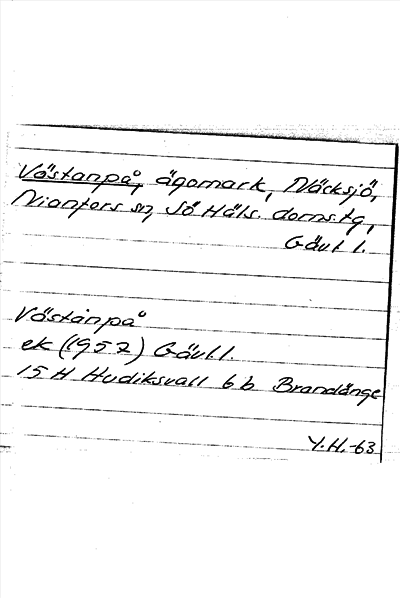 Västanpå, ägomark, Näcksjö,
Njanfors sn, Sö Häls. doms.tg,
Gävl l.
Västanpå
ek (1957) Gävl l.
15 H Hudiksvall 6 b Brandänge
Y.H.-63